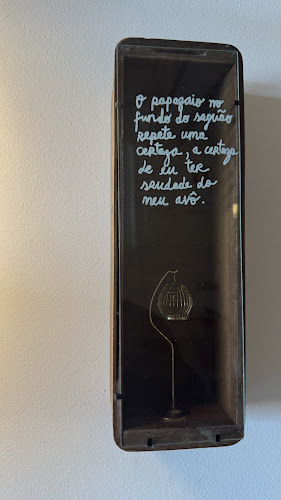 O papagaio no
fundo do saguão
repete uma
certeza, a certeza
de eu ter
saudade do
meu avô.